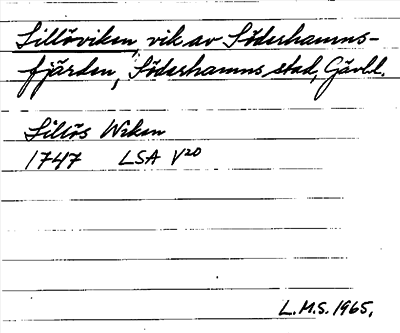 Sillöviken, vik av Söderhamns-
fjärden, Söderhamns stad, Gävl.l.
Sillös Wiken
1747 LSA V20
L.M.S. 1965.